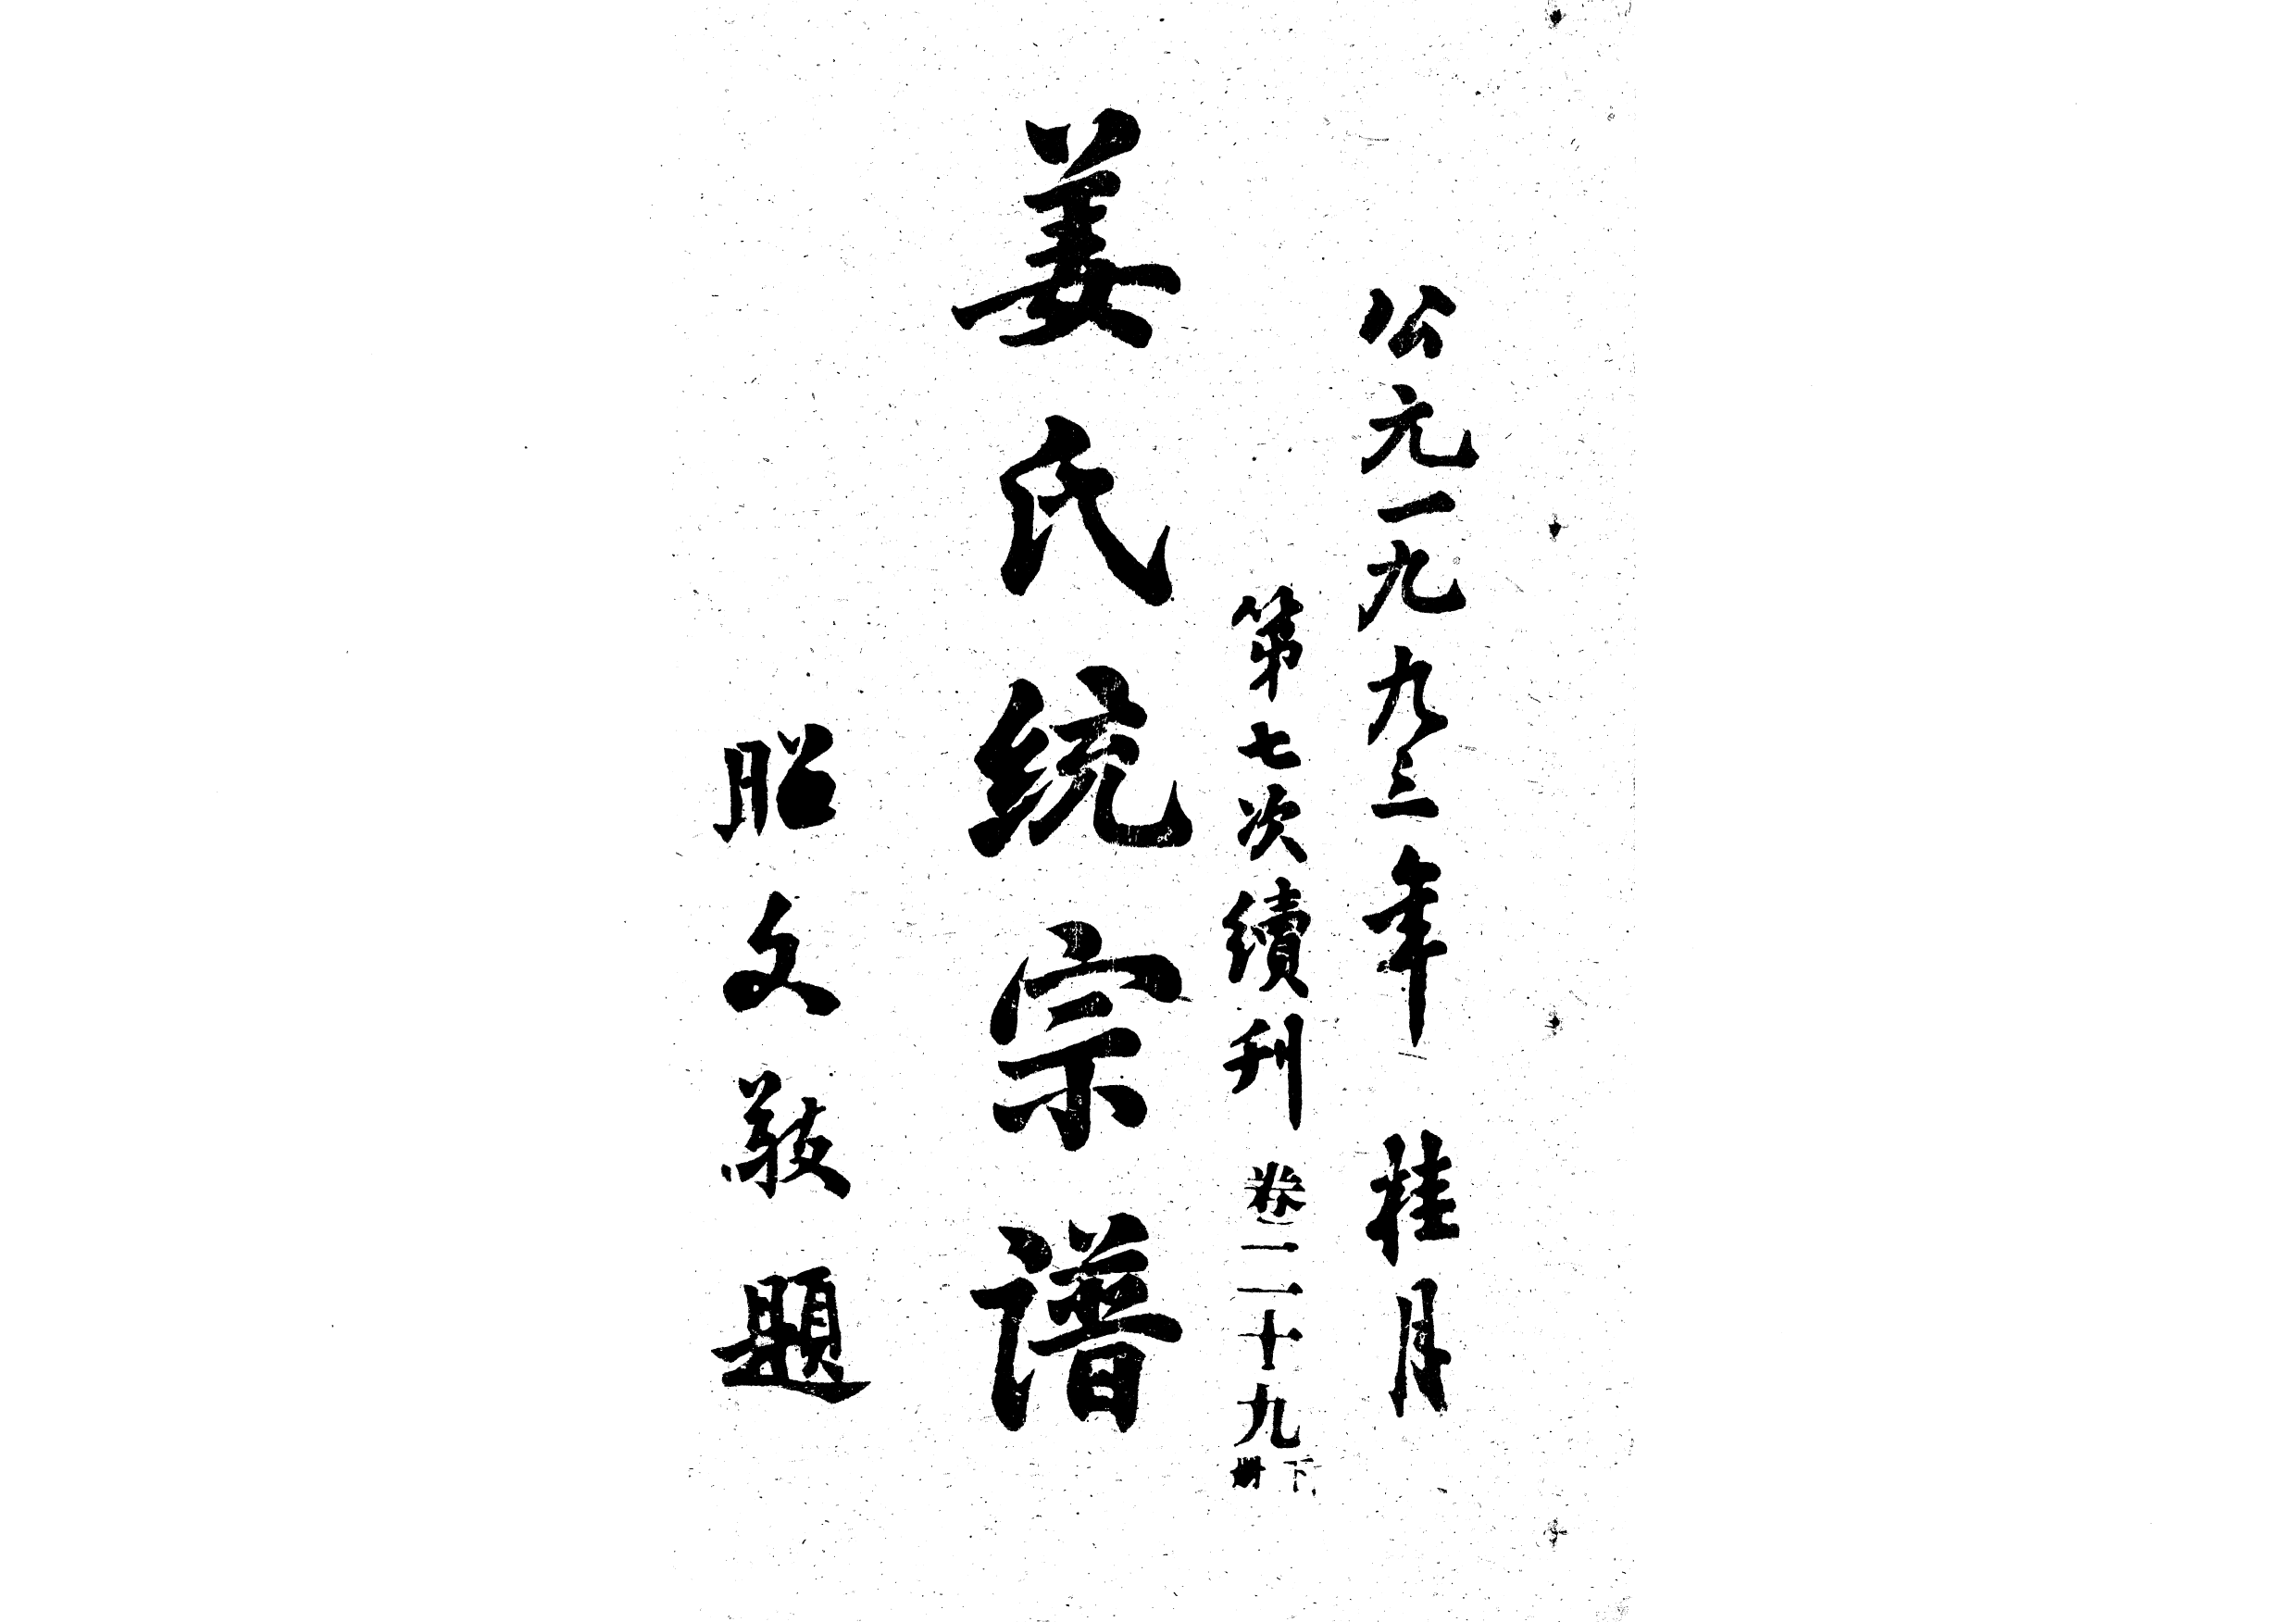 公元一九九三年 桂月
第七次續刊 卷二十九下冊
姜氏統宗譜
昭文敬題